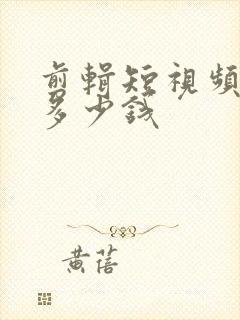 剪輯短視頻
多少錢
黃蓓